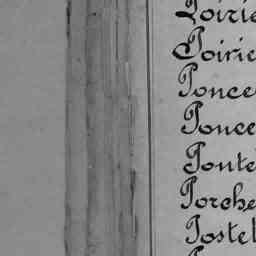 Poirie
Poirie
Ponce
Ponce
Ponte
Porche
Postel